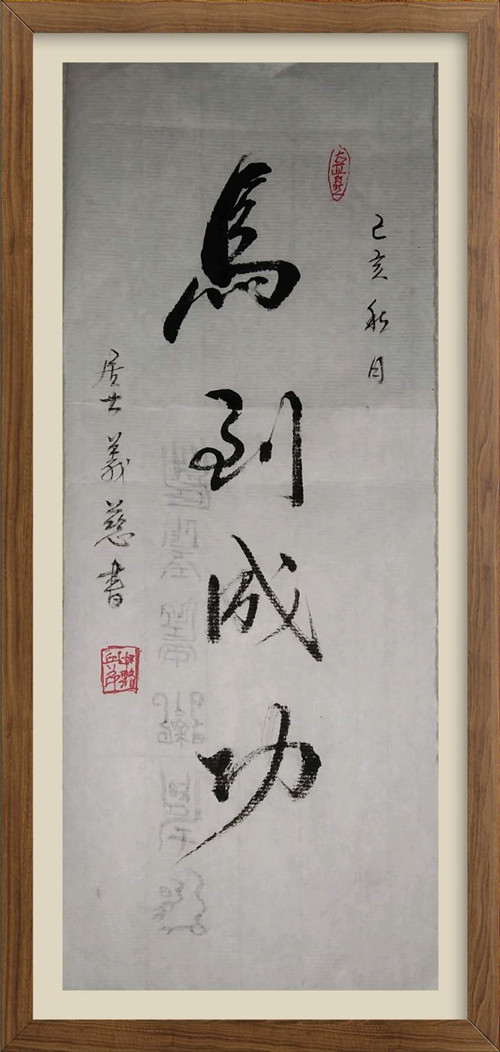 己亥秋月
馬到成功
居士義慈書